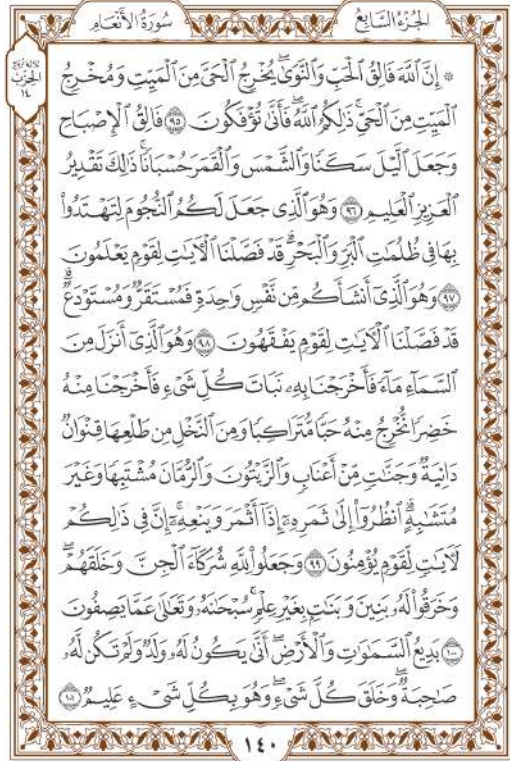 الجُزْءُ السَّابِعُ
سُورَةُ الأَنْعَامِ
الحِزْبُ
١٤
۞ إِنَّ ٱللَّهَ فَالِقُ ٱلْحَبِّ وَٱلنَّوَىٰۖ يُخْرِجُ ٱلْحَىَّ مِنَ ٱلْمَيِّتِ وَمُخْرِجُ
ٱلْمَيِّتِ مِنَ ٱلْحَىِّۚ ذَٰلِكُمُ ٱللَّهُۖ فَأَنَّىٰ تُؤْفَكُونَ ٩٥ فَالِقُ ٱلْإِصْبَاحِ
وَجَعَلَ ٱلَّيْلَ سَكَنًا وَٱلشَّمْسَ وَٱلْقَمَرَ حُسْبَانًاۚ ذَٰلِكَ تَقْدِيرُ
ٱلْعَزِيزِ ٱلْعَلِيمِ ٩٦ وَهُوَ ٱلَّذِى جَعَلَ لَكُمُ ٱلنُّجُومَ لِتَهْتَدُوا۟
بِهَا فِى ظُلُمَٰتِ ٱلْبَرِّ وَٱلْبَحْرِۗ قَدْ فَصَّلْنَا ٱلْـَٔايَٰتِ لِقَوْمٍ يَعْلَمُونَ
٩٧ وَهُوَ ٱلَّذِىٓ أَنشَأَكُم مِّن نَّفْسٍ وَٰحِدَةٍ فَمُسْتَقَرٌّ وَمُسْتَوْدَعٌۗ
قَدْ فَصَّلْنَا ٱلْـَٔايَٰتِ لِقَوْمٍ يَفْقَهُونَ ٩٨ وَهُوَ ٱلَّذِىٓ أَنزَلَ مِنَ
ٱلسَّمَآءِ مَآءً فَأَخْرَجْنَا بِهِۦ نَبَاتَ كُلِّ شَىْءٍ فَأَخْرَجْنَا مِنْهُ
خَضِرًا نُّخْرِجُ مِنْهُ حَبًّا مُّتَرَاكِبًا وَمِنَ ٱلنَّخْلِ مِن طَلْعِهَا قِنْوَانٌ
دَانِيَةٌ وَجَنَّٰتٍ مِّنْ أَعْنَابٍ وَٱلزَّيْتُونَ وَٱلرُّمَّانَ مُشْتَبِهًا وَغَيْرَ
مُتَشَٰبِهٍۗ ٱنظُرُوٓا۟ إِلَىٰ ثَمَرِهِۦٓ إِذَآ أَثْمَرَ وَيَنْعِهِۦٓۚ إِنَّ فِى ذَٰلِكُمْ
لَـَٔايَٰتٍ لِّقَوْمٍ يُؤْمِنُونَ ٩٩ وَجَعَلُوا۟ لِلَّهِ شُرَكَآءَ ٱلْجِنَّ وَخَلَقَهُمْۖ
وَخَرَقُوا۟ لَهُۥ بَنِينَ وَبَنَٰتٍۭ بِغَيْرِ عِلْمٍۚ سُبْحَٰنَهُۥ وَتَعَٰلَىٰ عَمَّا يَصِفُونَ
١٠٠ بَدِيعُ ٱلسَّمَٰوَٰتِ وَٱلْأَرْضِۖ أَنَّىٰ يَكُونُ لَهُۥ وَلَدٌ وَلَمْ تَكُن لَّهُۥ
صَٰحِبَةٌۖ وَخَلَقَ كُلَّ شَىْءٍۖ وَهُوَ بِكُلِّ شَىْءٍ عَلِيمٌ ١٠١
١٤٠